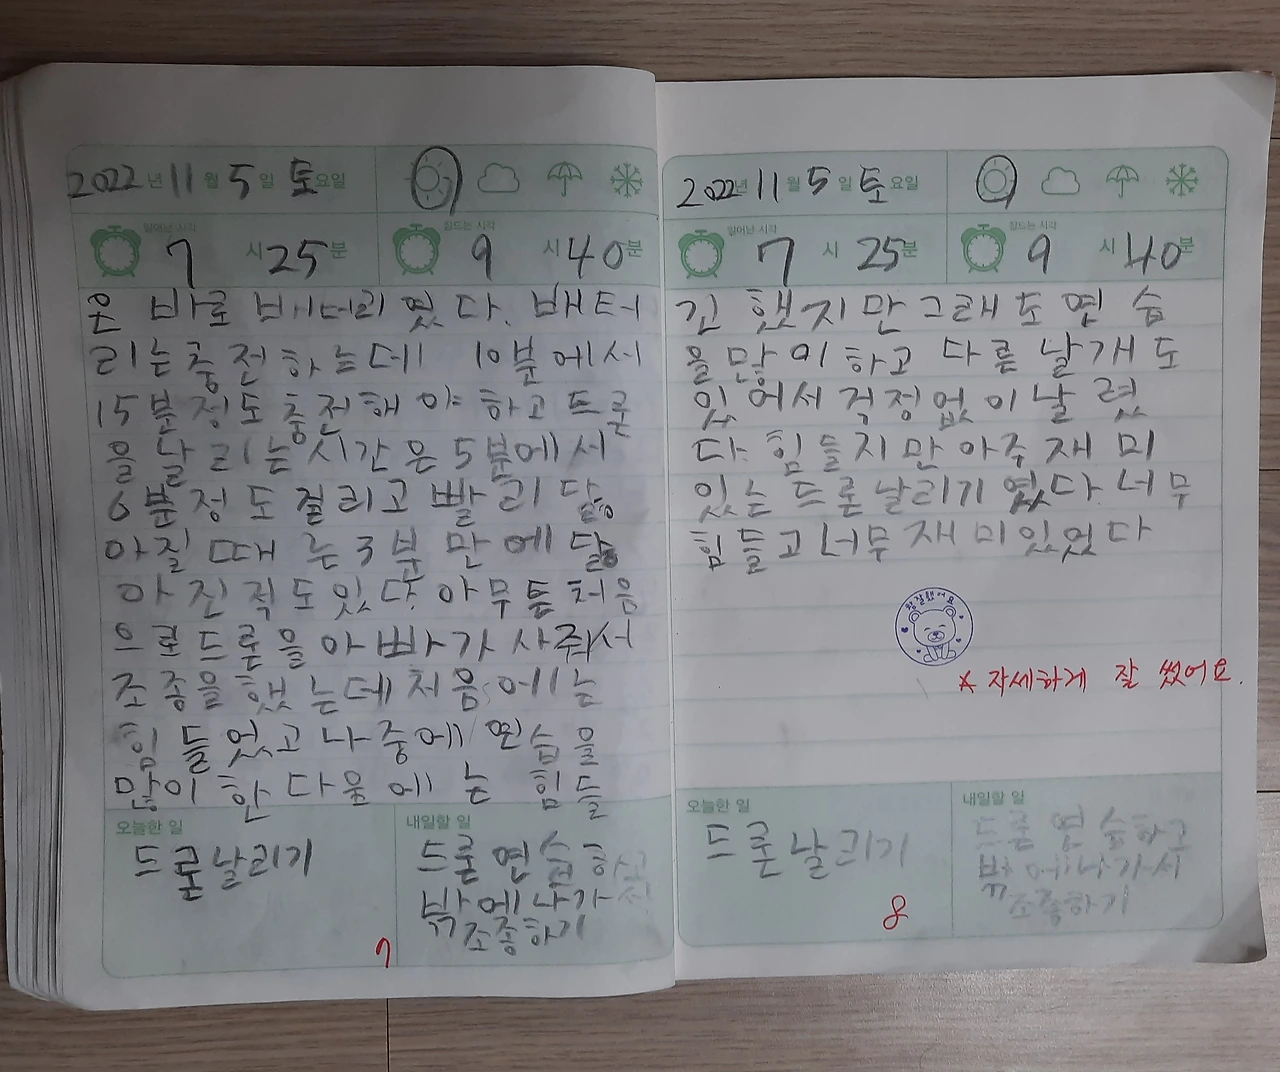 2022년 11월 5일 토요일
일어난 시각 7시 25분 잠드는 시각 9시 40분
은 바로 배터리 였다. 배터
리는 충전하는데 10분에서
15분정도 충전해야 하고 드론
을 날리는 시간은 5분에서
6분정도 걸리고 빨리 닳
아질 때는 3분만에 닳
아진적도있다. 아무튼 처음
으로 드론을 아빠가 사줘서
조종을 했는데 처음에는
힘들었고 나중에 연습을
많이 한 다음에는 힘들
오늘한 일
드론날리기
내일할 일
드론연습하고
밖에나가서
조종하기
7
2022년 11월 5일 토요일
일어난 시각 7시 25분 잠드는 시각 9시 40분
긴 했지만 그래도 연습
을많이하고 다른 날개도
있어서 걱정없이 날렸
다. 힘들지만 아주 재미
있는 드론날리기 였다. 너무
힘들고 너무 재미있었다
참 잘했어요
* 자세하게 잘 썼어요.
오늘한 일
드론날리기
8
내일할 일
드론 연습하고
밖에나가서
조종하기